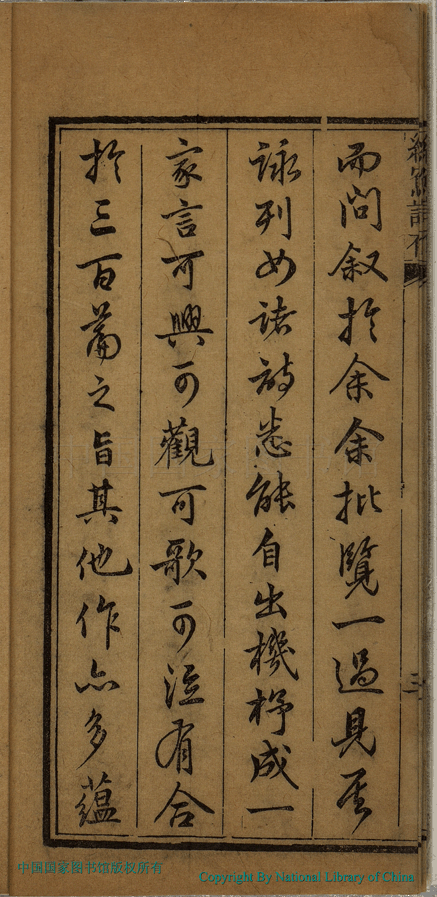 而問叙於余余批覽一過見
詠列女諸詩悉能自出機杼成一
家言可興可觀可歌可泣有合
於三百篇之旨其他作亦多蘊
中国国家图书馆版权所有
Copyright By National Library of China